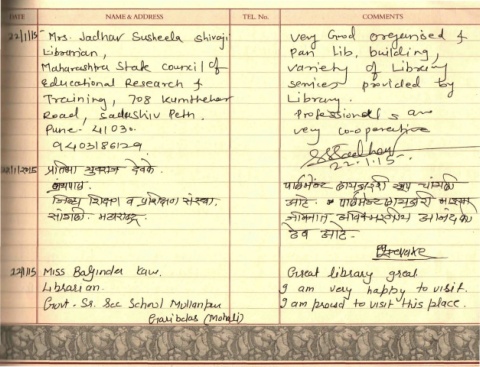 DATE NAME & ADDRESS TEL. No. COMMENTS
22/1/15 Mrs. Jadhav Susheela Shivaji
Librarian,
Maharashtra State Council of
Educational Research &
Training, 708
Road, Sadashiv Peth.
Pune 41030.
9403186129
very Good organised &
Pan Lib. building,
variety of Library
services provided by
Library.
Professionals are
very co-operative
22.1.15
22/1/2015 प्रतिभा देवके
ग्रंथपाल
जिल्हा शिक्षण व प्रशिक्षण संस्था
सांगली. महाराष्ट्र
पार्लमेन्ट लायब्ररी खूप चांगली
आहे. पार्लमेन्ट लायब्ररी माझ्या
आनंदकी
ठेव आहे.
22/1/15 Miss Baljinder Kaur.
Librarian.
Govt. Sr. Sec School Mullanpur
Garibdas (Mohali)
Great library great
I am very happy to visit.
I am proud to visit this place.